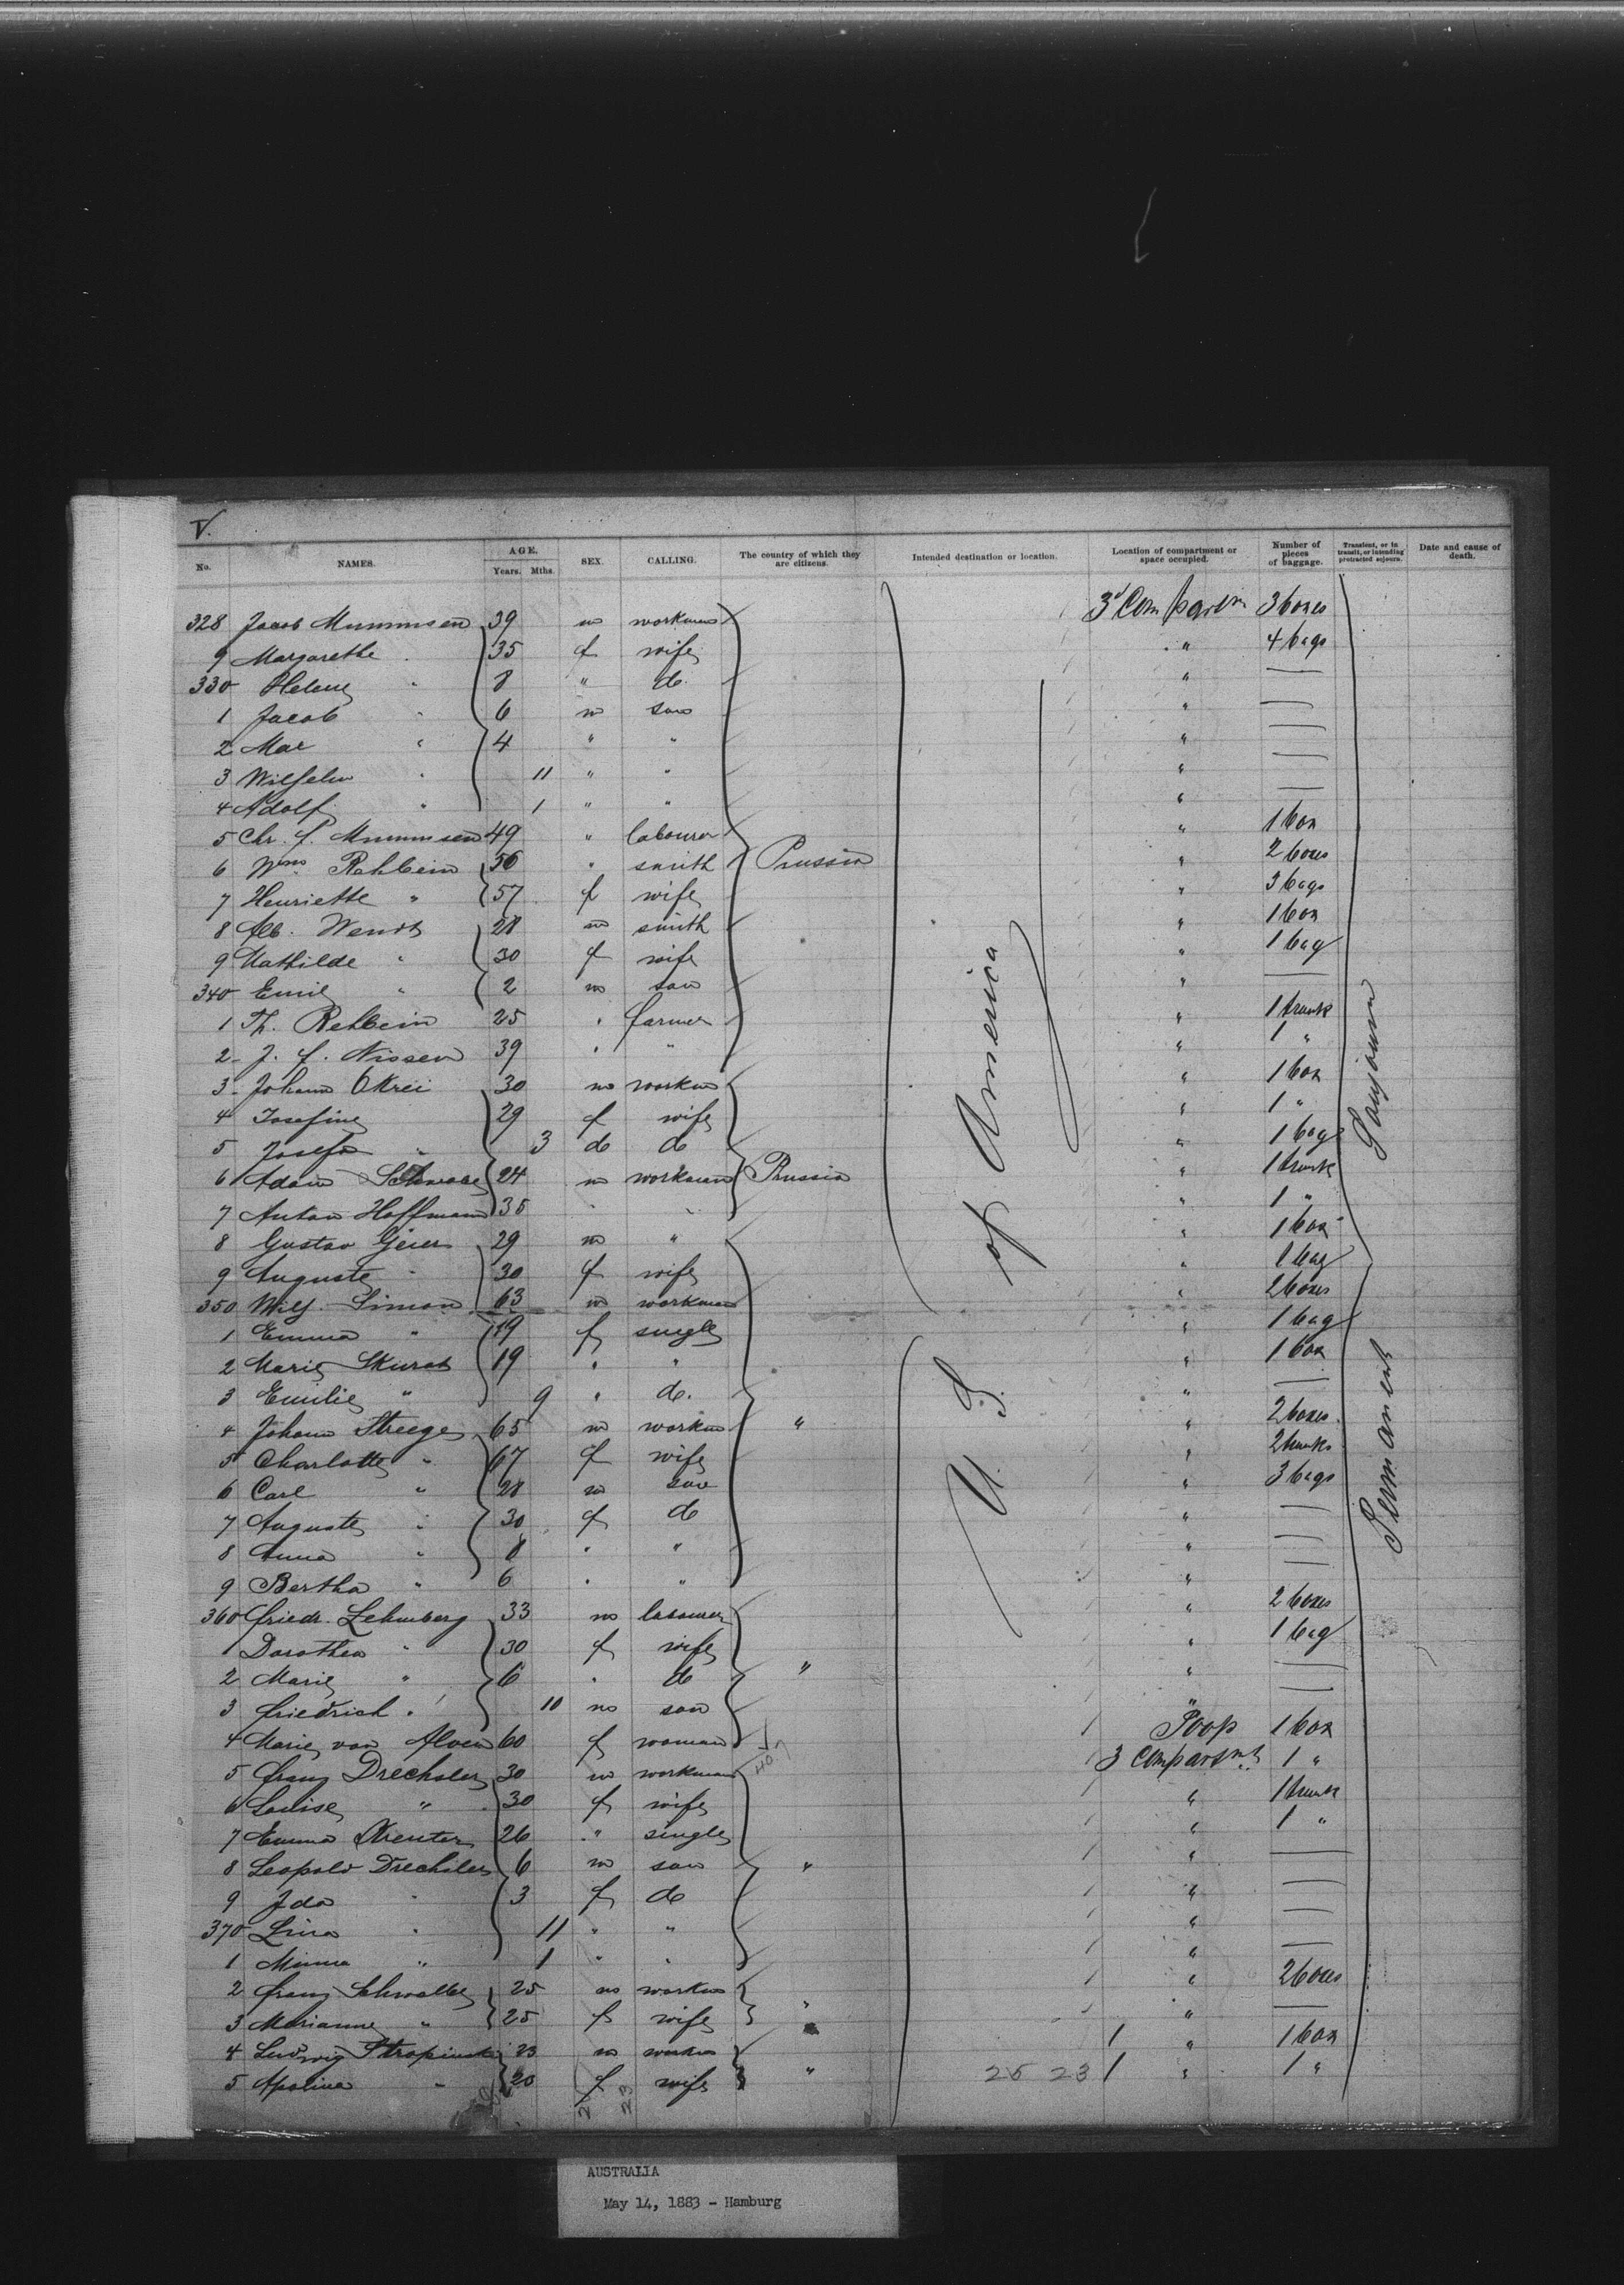 V.
No. NAMES. AGE. Years. Mths. SEX. CALLING. The country of which they are citizens. Intended destination or location. Location of compartment or space occupied. Number of pieces of baggage. Transient, or in transit, or intending protracted sojourn. Date and cause of death.
328 Jacob Mummsen 39 m workman 3d Compartm 3 boxes
9 Margarethe " 35 f wife " 4 bags
330 Helene " 8 " do " —
1 Jacob " 6 m son " —
2 Max " 4 " " " —
3 Wilhelm " 11 " " " —
4 Adolf " 1 " " " —
5 Chr. f. Mummsen 49 " labourer " 1 box
6 Wm Rehbein 56 " smith Prussia " 2 boxes
7 Henriette " 57 f wife " 3 bags
8 Alb. Wendt 28 m smith " 1 box
9 Mathilde " 30 f wife " 1 bag
340 Emil " 2 m son " —
1 Th. Rehbein 25 " farmer " 1 trunk
2 J. f. Nissen 39 " " " 1 "
3 Johann Okrei 30 m workm " 1 box
4 Josefine 29 f wife " 1 "
5 Josefa " 3 do do " 1 bag
6 Adam Schwabe 24 m workman Prussia " 1 trunk
7 Anton Hoffmann 35 " " " 1 "
8 Gustav Geier 29 m " " 1 box
9 Auguste " 30 f wife " 1 bag
350 Wilh. Simon 63 m workman " 2 boxes
1 Emma " 19 f single " 1 bag
2 Marie Skurat 19 " " " 1 box
3 Emilie " 9 " do. " —
4 Johann Streege 65 m workm " " 2 boxes
5 Charlotte " 67 f wife " 2 trunks
6 Carl " 28 m son " 3 bags
7 Auguste " 30 f do " —
8 Anna " 8 " " " —
9 Bertha " 6 " " " —
360 Friedr. Lehmberg 33 m labourer " 2 boxes
1 Dorothea " 30 f wife " 1 bag
2 Marie " 6 " do " " —
3 Friedrich " 10 m son " —
4 Marie von Alven 60 f woman Poop 1 box
5 Franz Drechsler 30 m workman 3 Compartmt 1 "
6 Louise " 30 f wife " 1 trunk
7 Emma 26 " single " 1 "
8 Leopold Drechsler 6 m son " " —
9 Ida " 3 f do " —
370 Lina " 11 " " " —
1 Minna " 1 " " " —
2 Franz Schwalbe 25 m workm " 2 boxes
3 Marianne " 25 f wife " " —
4 Ludwig Stropinski 23 m workm 1 " 1 box
5 Apolina " 20 f wife " 25 23 1 " 1 "
U. S. of America
Permanent Soujourn
AUSTRALIA
May 14, 1883 - Hamburg